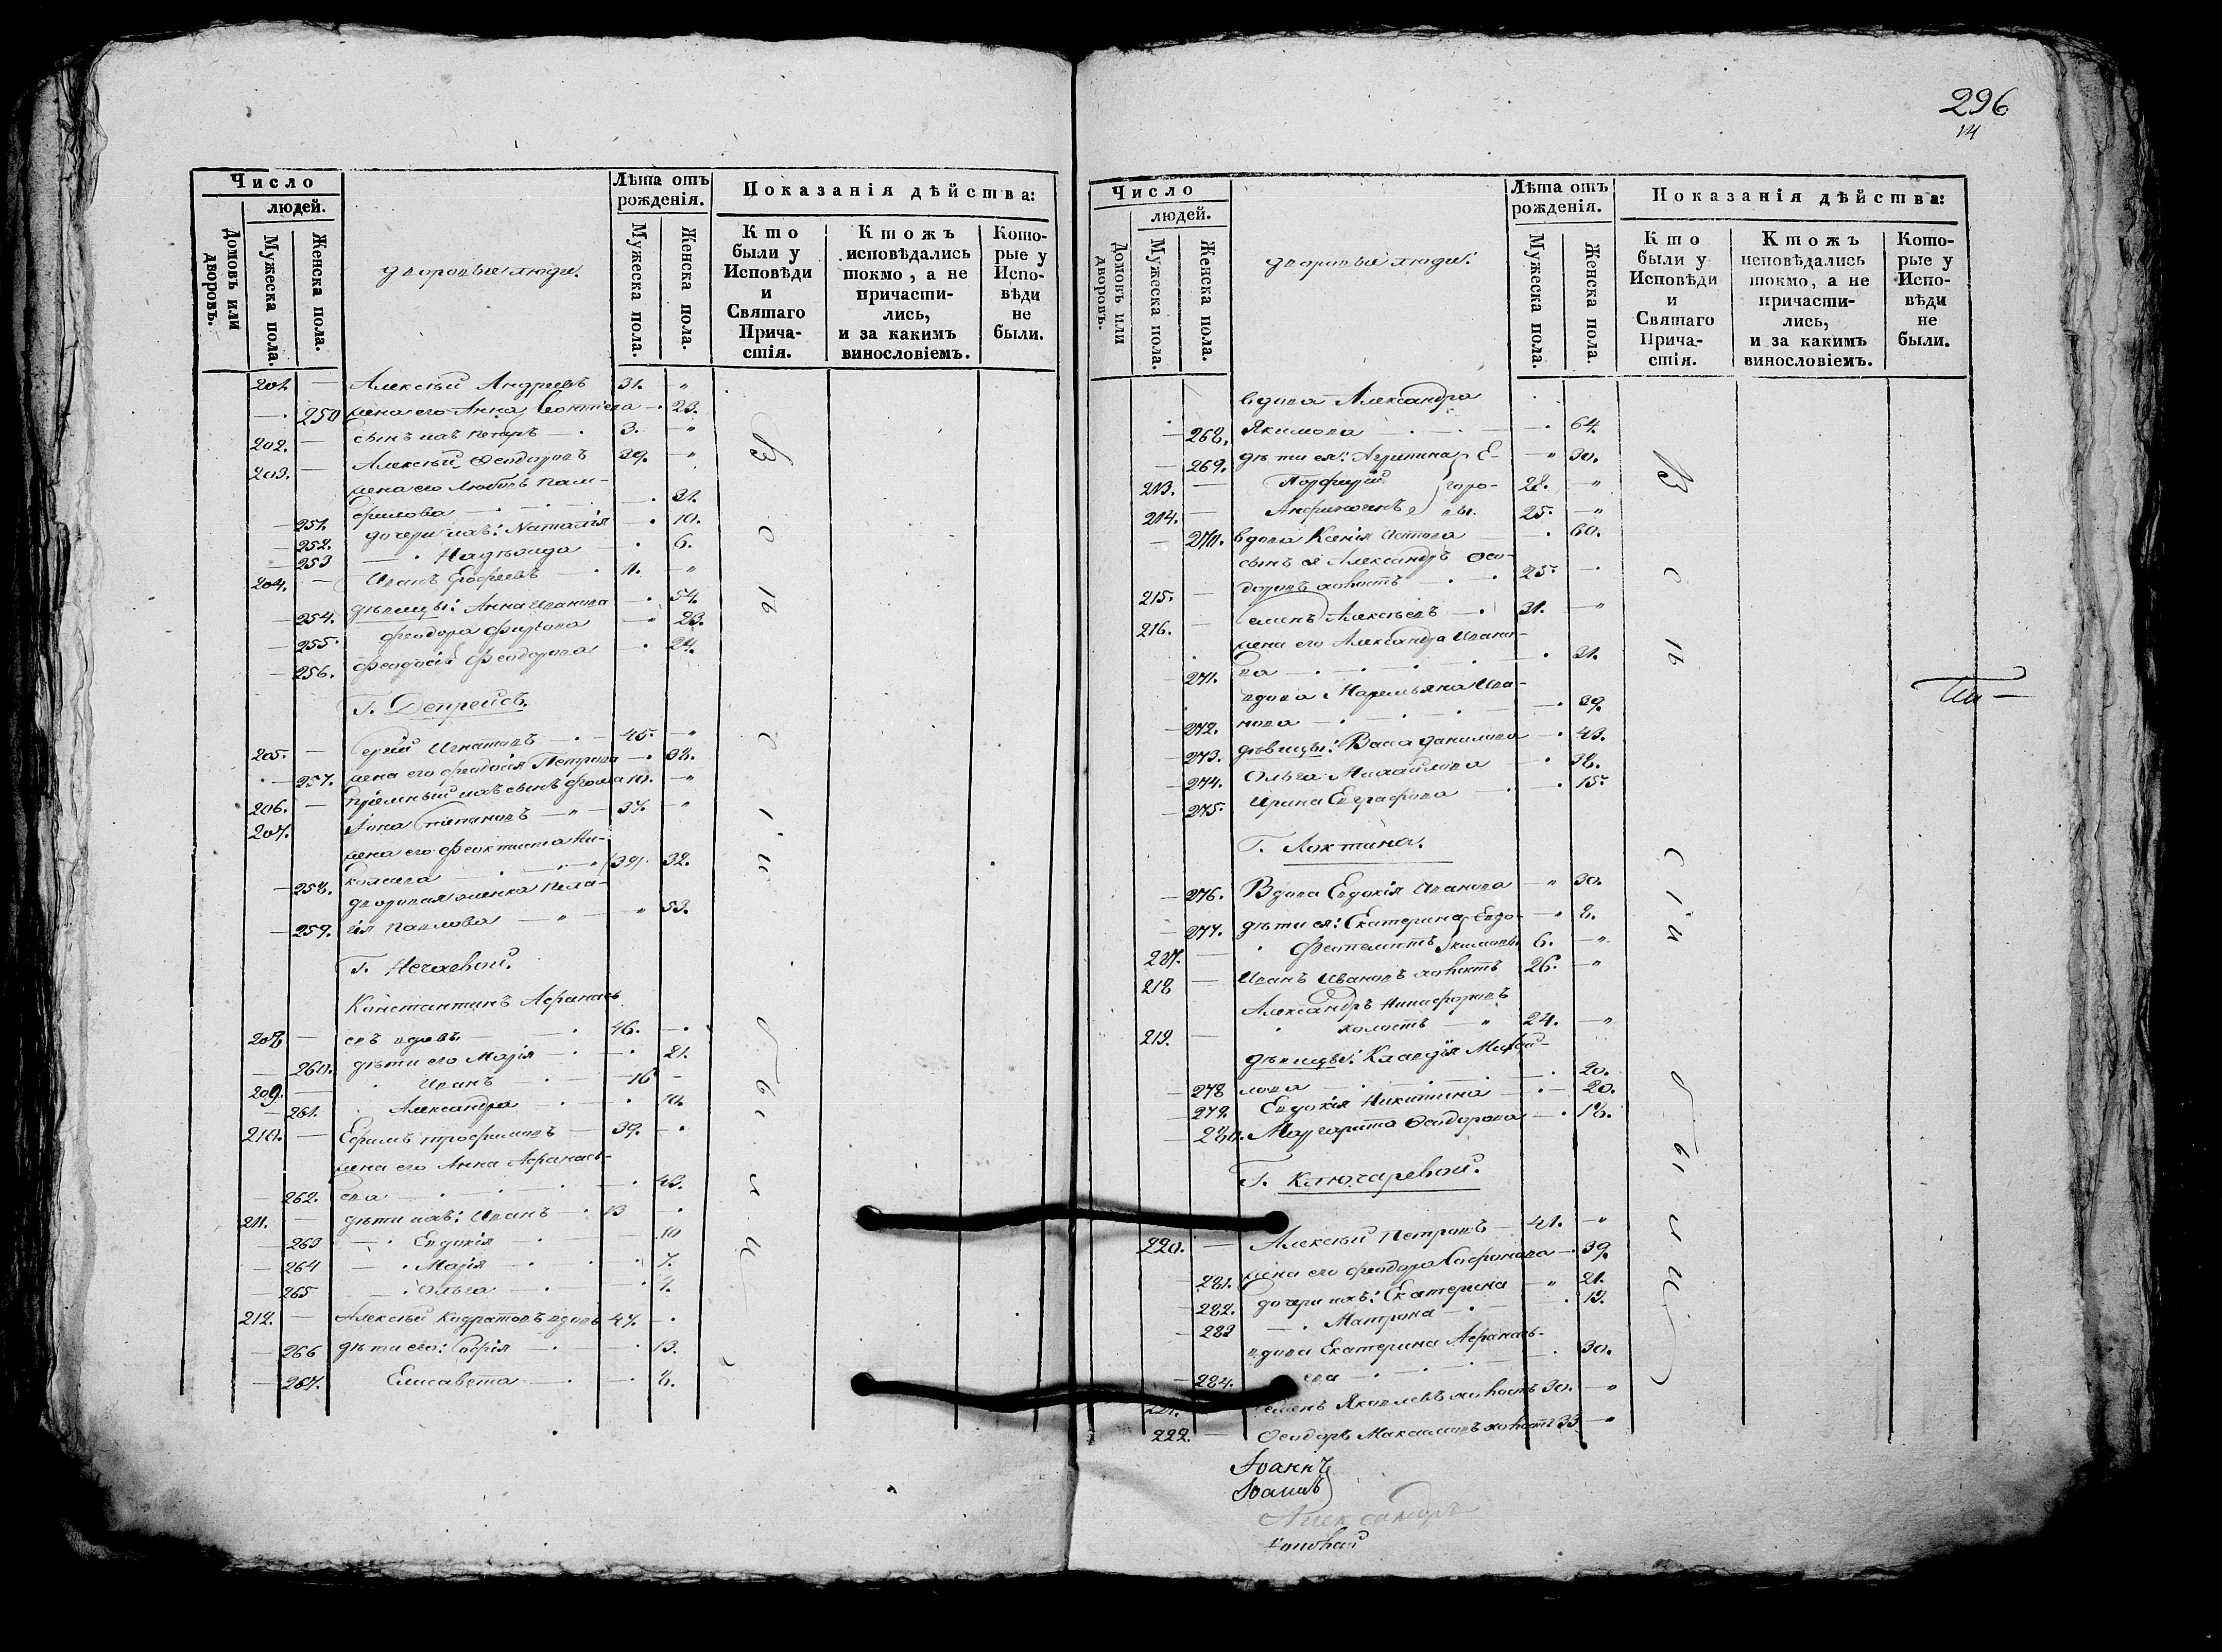 296
14
Число
людей.
Домовъ или дворовъ.
Мужеска пола.
Женска пола.
дворовые люди.
Лѣта отъ рожденія.
Мужеска пола.
Женска пола.
Показанія дѣйства:
Кто были у Исповѣди и Святаго Прича-стія.
Ктожъ исповѣдались токмо, а не причасти-лись, и за какимъ винословіемъ.
Кото-рые у Испо-вѣди не были.
201. — Алексѣй Андреевъ 31. — „
— 250 жена его Анна Леонтіева — 23.
202. — сынъ ихъ Петръ — 3. — „
203. — Алексѣй Ѳеодоровъ 39. — „
жена его Любовь Пам-
— 251. филова — 31.
— 252. дочери ихъ: Наталія — 10.
— 253 — Надѣжда — 6.
204. — Иванъ Ерофеевъ — 11. — „
— 254. дѣвицы: Анна Иванова — 54.
— 255. Феодора Фирсова — 23.
— 256. Феодосія Феодорова — 24.
Г. Депрейсъ.
205. — Сергій Игнатовъ — 45. — „
— 257. жена его Феодосія Петрова — 38.
206. — пріемный ихъ сынъ Фома 10. — „
207. Іона Степановъ — „ — 37. — „
жена его Феоктиста Ни-
— 258. колаева — (39). 32.
дворовая женка Пела-
— 259. гія Павлова — „ — „ 53.
Г. Нечаевой.
Константинъ Афанась
208 — евъ вдовъ — 46. —
— 260. дѣти его Марія — 21.
209. — Иванъ — 16 —
— 261. Александра — 10.
210. — Ефимъ Трофимовъ — 39. —
жена его Анна Афанась-
— 262. ева — 43.
211. — дѣти ихъ: Иванъ — 13 —
— 263 — Евдокія — 10
— 264 — Марія — 7.
— 265 — Ольга — 4.
212. — Алексѣй Кодратовъ вдовъ 47. —
— 266 дѣти его: Софія — 13.
— 267. Елисавета — 8.
В с ѣ с і и б ы л и
Число
людей.
Домовъ или дворовъ.
Мужеска пола.
Женска пола.
дворовые люди:
Лѣта отъ рожденія.
Мужеска пола.
Женска пола.
Показанія дѣйства:
Кто были у Исповѣди и Святаго Прича-стія.
Ктожъ исповѣдались токмо, а не причасти-лись, и за какимъ винословіемъ.
Кото-рые у Испо-вѣди не были.
вдова Александра
— 268. Якимова — 64.
— 269. дѣти ея: Агрипина Е- — „ 30.
213. — Порфирій горо- 28. — „
214. — вы. 25. — „
— 270. вдова Ксенія — 60.
сынъ ея Александръ Ѳео-
215. — доровъ холостъ — 25. —
216. — Семенъ Алексѣевъ — 31. — „
жена его Александра Ивано-
— 271. ва — 31.
вдова Маремьяна Ива-
— 272. нова — 39.
— 273. дѣвицы: Васса Данилова — 43.
— 274. Ольга Михайлова — 38.
— 275. Ирина Евграфова — 15.
Г. Локтина.
— 276. Вдова Евдокія Иванова — „ 30.
— 277. дѣти ея: Екатерина Евдо- — „ 8.
217. — Феоктистъ кимовы 6. — „
218 — Иванъ Ивановъ холостъ 26. — „
Александръ Никифоровъ
219. — холостъ — „ 24. — „
дѣвицы: Клавдія Михай-
— 278 лова — 20.
— 279. Евдокія Никитина — 20.
— 280. Маргарита Ѳеодорова — 18.
Г. Ключаревой.
220. — Алексѣй Петровъ — 41. — „
— 281. жена его Феодора Сафонова — 39.
— 282. дочери ихъ: Екатерина — „ 21.
— 283 — Матрона — 13.
вдова Екатерина Афанась-
— 284. ева — 30.
221. Семенъ Яковлевъ холостъ 30. — „
222. — Ѳеодоръ Максимовъ холостъ 33 — „
В с ѣ с і и б ы л и
Іоаннъ
Іоаннъ
Александръ